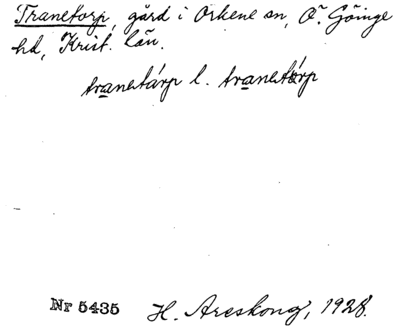 Tranetorp, gård i Örkene sn, Ö. Göinge
hd, Krist. län.
tranetárp l. tranetórp
Nr 5435 H. Areskoug, 1928.